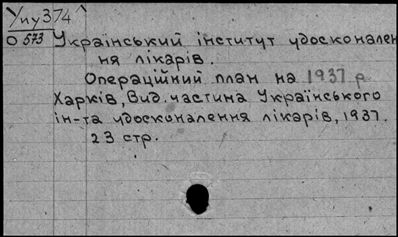 Упу374
О 573 Український інститут удосконален
ня лікарів.
Операційний план на 1937 р
Харків, Вид. частина Українського
ін-та удосконалення лікарів, 1937.
23 стр.